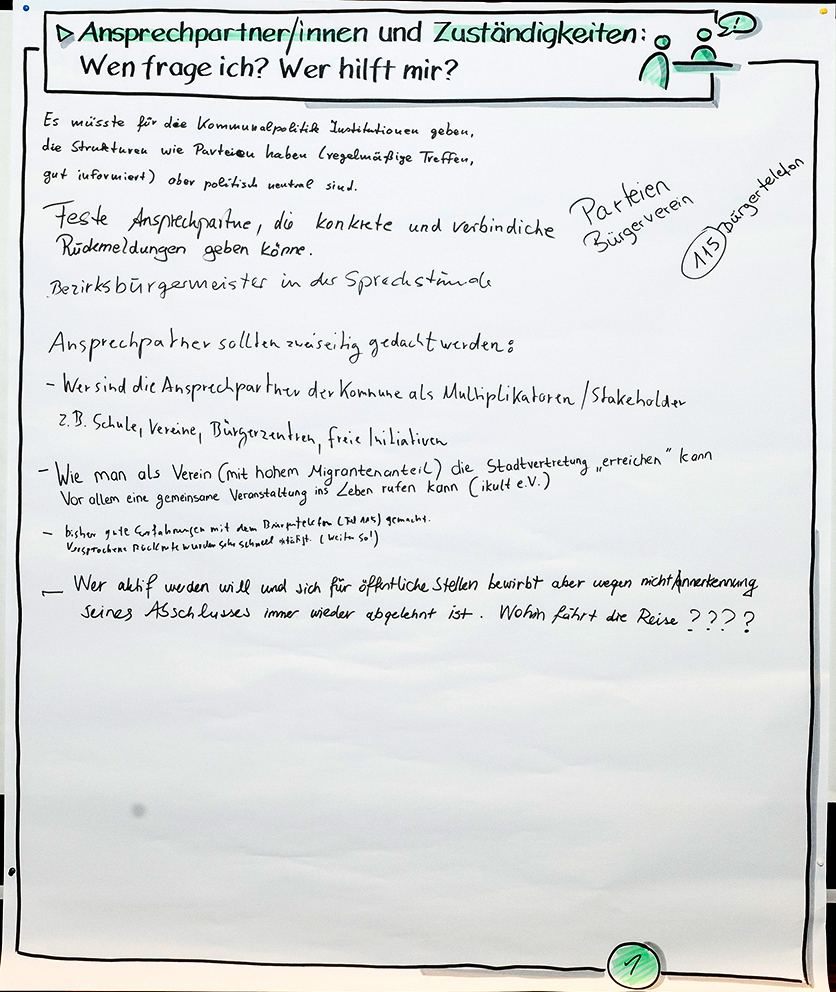 Ansprechpartner/innen und Zuständigkeiten:
Wen frage ich? Wer hilft mir?
Es müsste für die Kommunalpolitik Institutionen geben,
die Strukturen wie Parteien haben (regelmäßige Treffen,
gut informiert) aber politisch neutral sind.
Feste Ansprechpartne, die konkrete und verbindliche
Rückmeldungen geben könne.
Parteien
Bürgerverein
115 Bürgertelefon
Bezirksbürgermeister in der Sprechstunde
Ansprechpartner sollten zweiseitig gedacht werden:
- Wer sind die Ansprechpartner der Kommune als Multiplikatoren / Stakeholder
z.B. Schule, Vereine, Bürgerzentren, freie Initiativen
- Wie man als Verein (mit hohem Migrantenanteil) die Stadtvertretung „erreichen" kann
Vor allem eine gemeinsame Veranstaltung ins Leben rufen kann (ikult e.V.)
- bisher gute Erfahrungen mit dem Bürgertelefon (Tel 115) gemacht.
Versprochene Rückrufe wurden sehr schnell getätigt. (weiter so!)
- Wer aktif werden will und sich für öffentliche Stellen bewirbt aber wegen nicht Annerkennung
seines Abschlusses immer wieder abgelehnt ist. Wohin führt die Reise ????
1